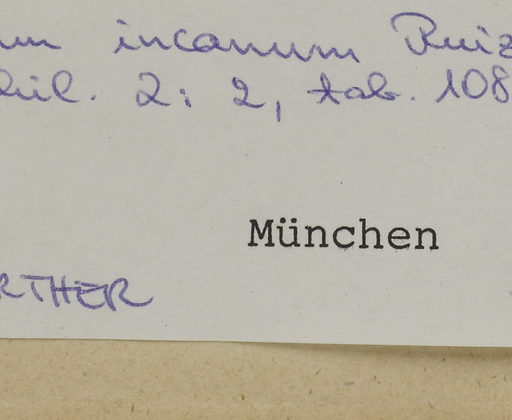 um incanum Ruiz
hil. 2: 2, tab. 108
München
RTHER